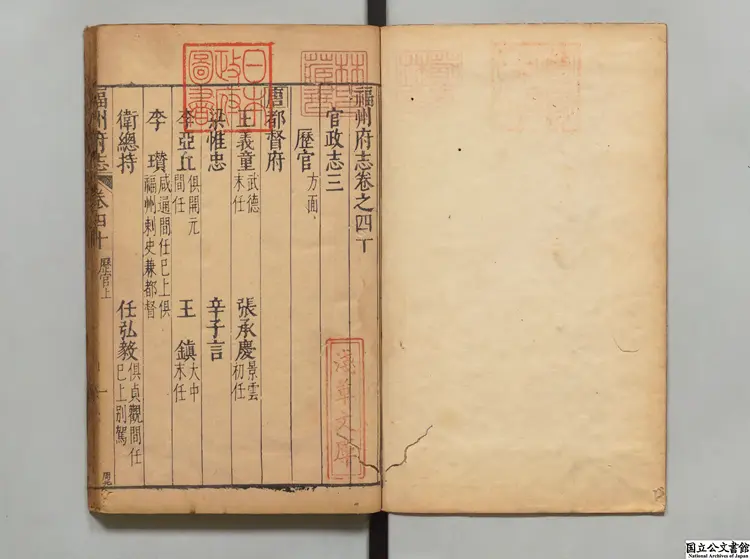 福州府志卷之四十
官政志三
歷官 方面
唐都督府
王義童 武德末任 張承慶 景雲初任
梁惟忠 辛子言
李亞丘 俱開元間任 王鎮 大中末任
李瓚 咸通間任已上俱福州刺史兼都督
衛總持 任弘敎 俱貞觀間任已上別駕
福州府志 卷四十 歷官上 一
日本政府圖書
林氏藏書
淺草文庫
国立公文書館
National Archives of Japan